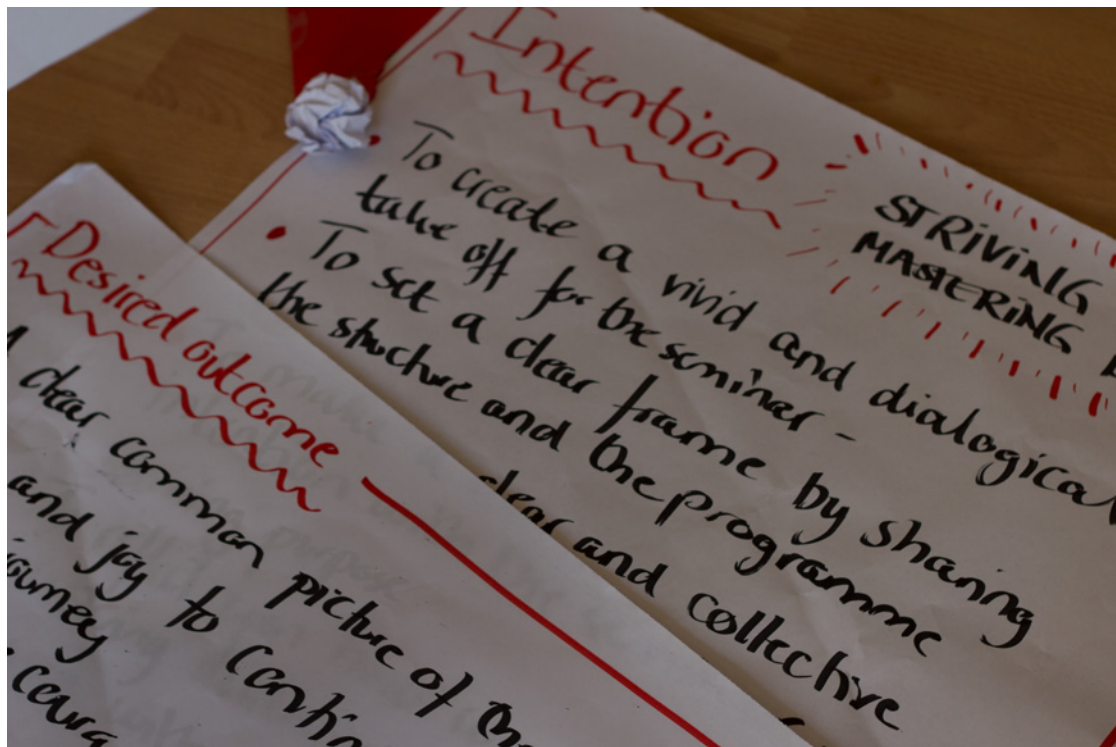 Intention
STRIVING
MASTERING
To create a vivid and dialogical
take off for the seminar -
To set a clear frame by sharing
the structure and the programme
clear and collective
Desired outcome
A clear common picture of
and joy to
journey